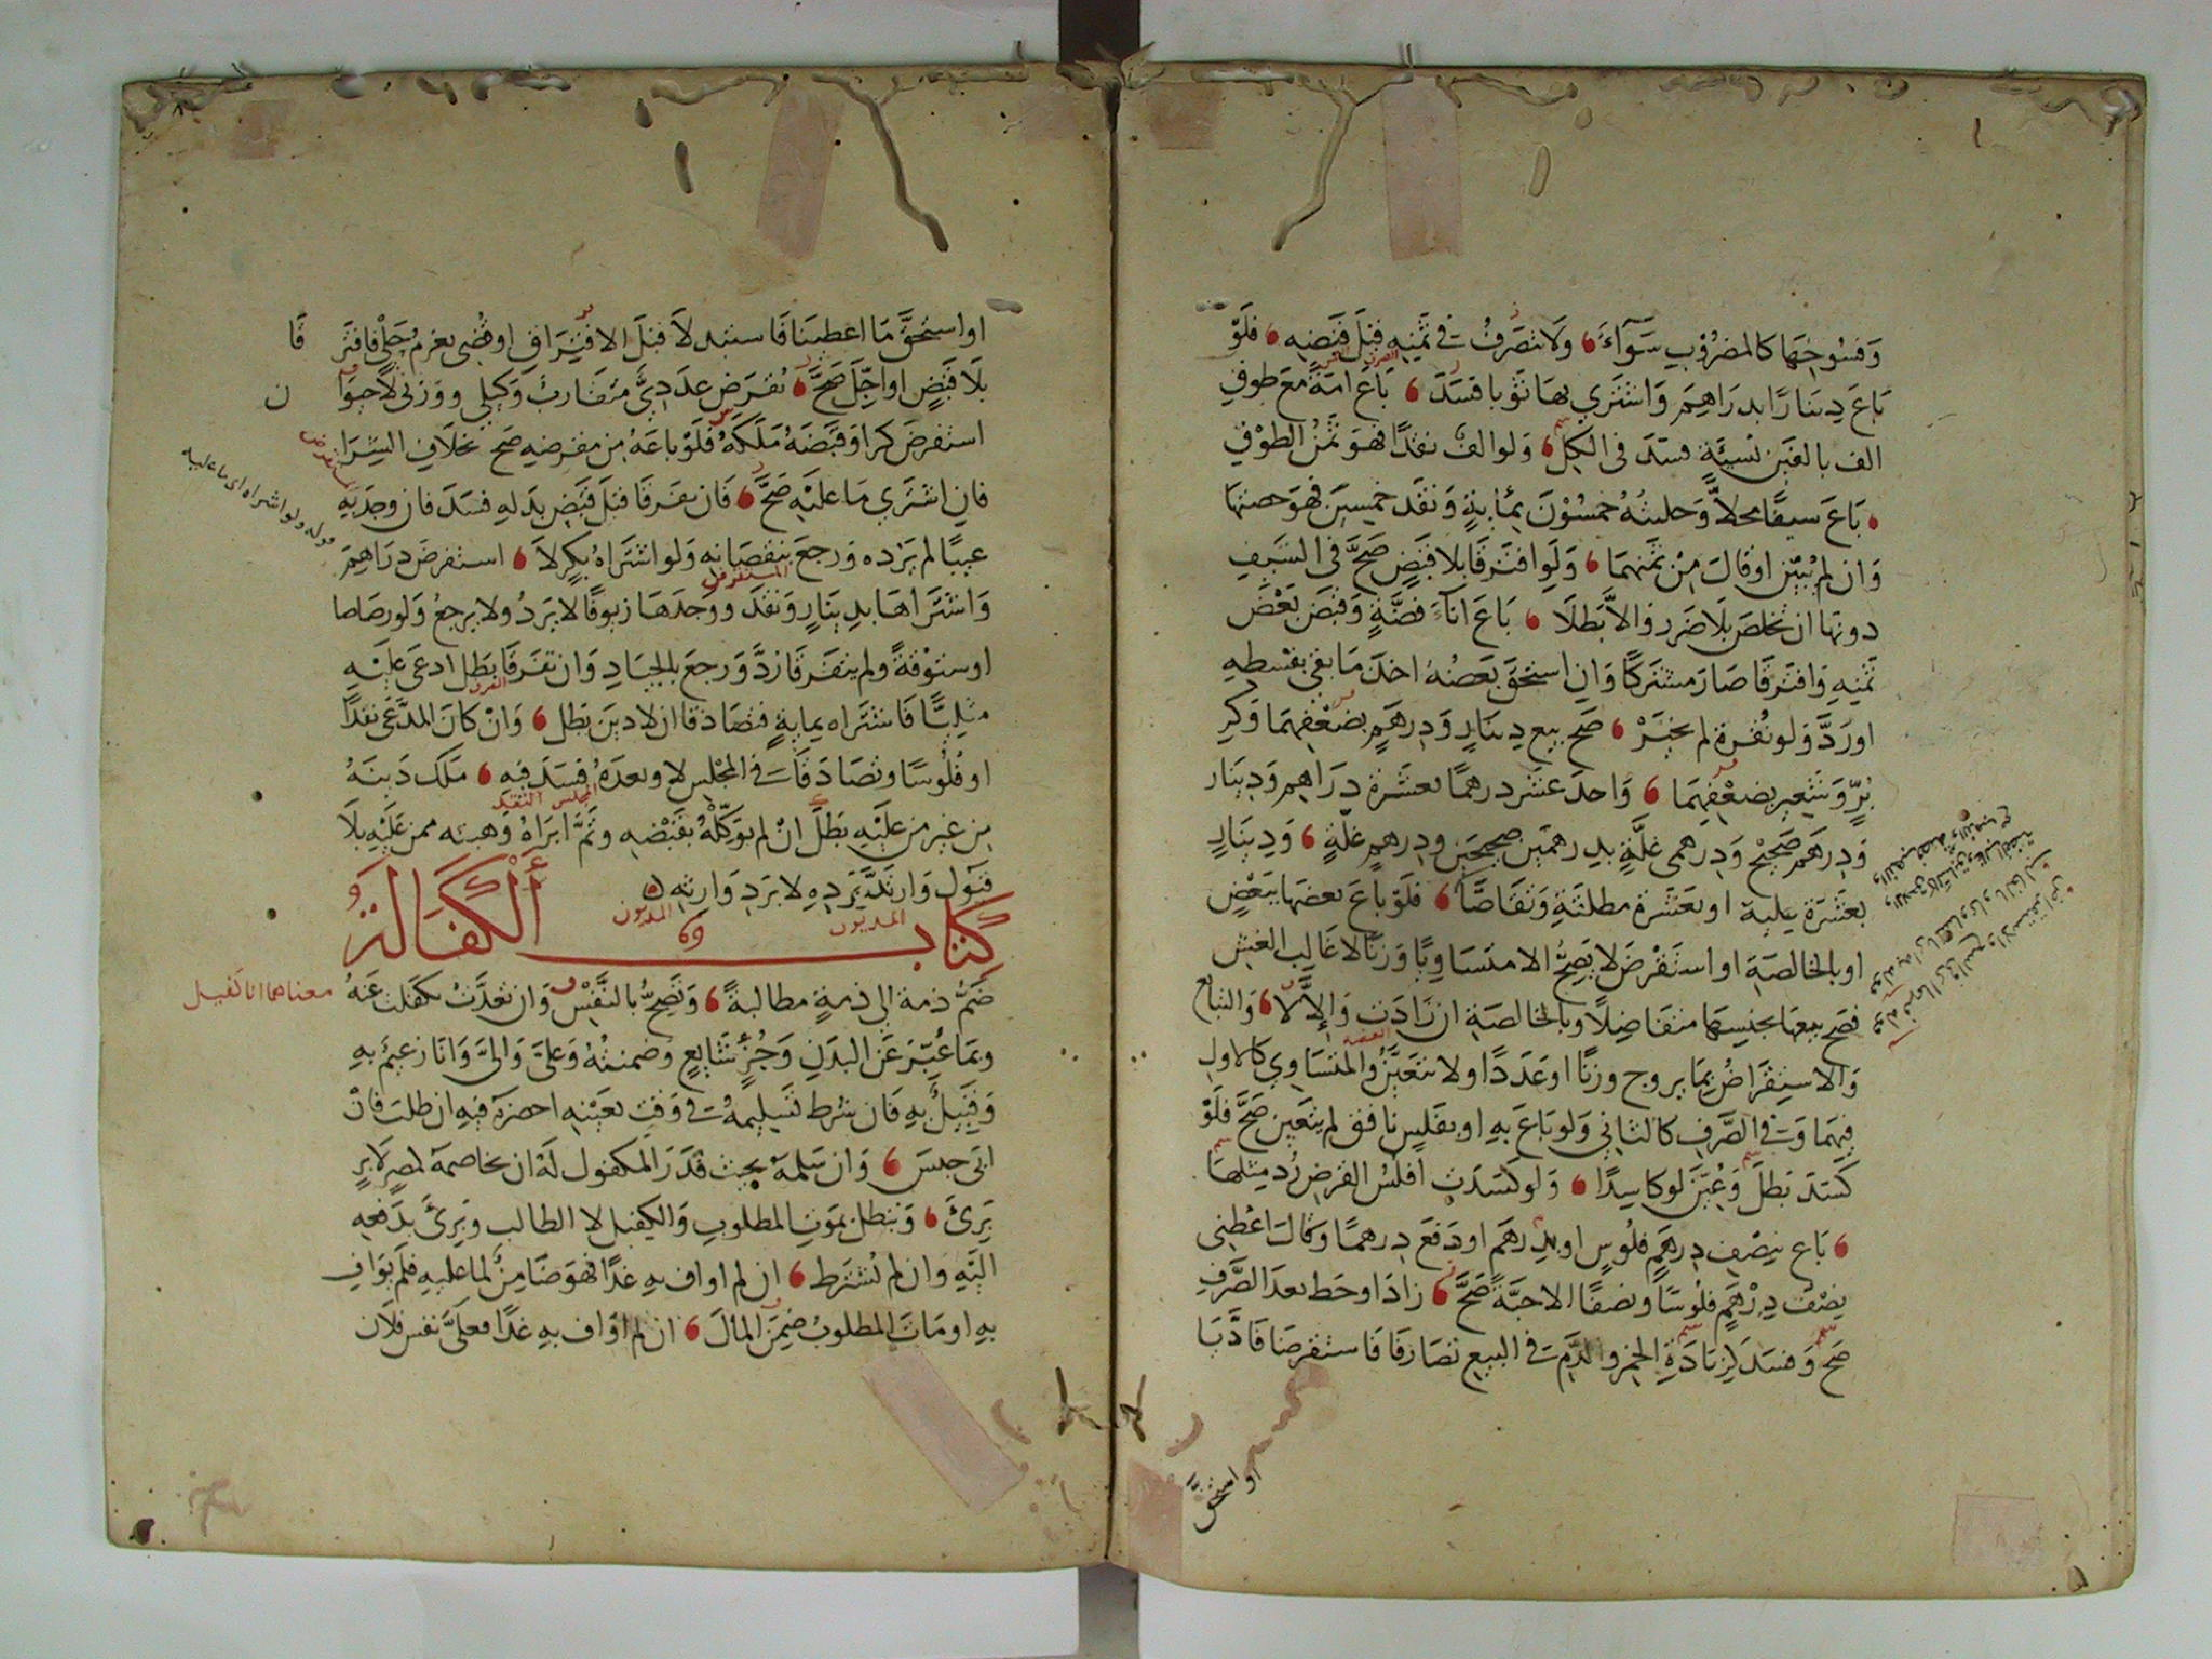 وَمنسوجها كالمضرُوبِ سَوَآءٌ وَلا تصَرفُ في ثمنِه قبلَ قبَضِه فَلَوْ
بَاعَ دِينَارًا بدرَاهِمَ وَاشترَي بهَا ثوْبا فسَدَ بَاعَ امَةً مَعَ طوقِ
الف بالفَين نَسيئَةٍ فسَدَ في الكلِّ وَلو الفٌ نقدًا فهوَ ثمنُ الطوْقِ
بَاعَ سيفًا محلاًّ وَحليتُهُ خمسُوْنَ بمائةٍ وَنقَدَ خمسِيَن فهوَ حصتها
وَان لم يُبيّن او قالَ مِنْ ثمنِهمَا وَلَوِ افترَقَا بلا قبَضٍ صَحَّ في السَّيفِ
دونها ان تخلصَ بلَا ضَررِ والاَّ بَطلَا بَاعَ انآءَ فضَّةٍ وَقبَضَ بَعْضَ
ثمنِهِ وَافترَقَا صَارَ مشترَكًا وَانِ استحَقَّ بَعضُهُ اخذَ مَا بقى بقسْطِهِ
اورَدَّ وَلو نُقرةً لم يخيَّرْ صَحّ بيع دِينَارٍ وَدِرهَمٍ بضعْفِهمَا وَكرِ
بُرٍّ وَشَعيرٍ بضعْفِهمَا وَاحدَ عشَرَ درهمًا بعشَرة دِرَاهِم وَدِينَار
وَدِرهَم صَحِيْح وَدِرهَمى غلَّةٍ بدِرهمَين صحِيحَينِ ودِرهمِ غلّةٍ وَدِينَارٍ
بعَشَرَة عليهِ او بعَشَرة مطلقَةٍ وَتقَاصَّا فلَوْ باعَ بعضَهَا ببَعْضٍ
او بالخالصَةِ او استَقْرضَ لا يَصِحُّ الا متَسَاوِيًا وَزنًا لا غالِب الغش
فصَح بيعهَا بجنِسهَا متفَاضِلًا وبالخالصَةِ ان زَادَت وَإلاَّ لا وَالتبايع
وَالاستِقرَاضُ بمَا يروج وزنًا او عَدَدًا ولا تتعيَّنُ وَالمتسَاوِي كالاولِ
فيهمَا وَفي الصَّرفِ كالثانِي وَلو بَاعَ بهِ او بفَلسٍ نافقٍ لم يتعَين صَحَّ فلَوْ
كسَدَ بَطلَ وَعُيِّنَ لو كاسِدًا وَلو كسَدَتِ افلُسُ القرضِ رُدَّ مثلهَا
بَاع بنِصْفِ دِرهَمٍ فلُوسٍ او بدِرهَم او دَفعَ دِرهمًا وَقالَ اعْطِنِى
نِصْفَ دِرْهَمٍ فلُوْسًا ونصفًا الا حبَّةً صَحَّ زادَ او حَط بعدَ الصَّرفِ
صَح وَفسَدَ لزيَادَةِ الخمرِ والدَّمِ في البيعِ تصَارَفَا فَاستقرضَا فَادَّيَا
او استحق
او استحقَّ مَا اعطيَنَا فَاستبدلَا قبلَ الافترَاقِ او قُضِى بغرمِ حَلْيٍ فافترَقَا
بلَا قبَضٍ او اجِّلَ صَحَّ نُقرِضَ عدَدِيٌّ متقاربٌ وَكيلي ووَزنى لا حيوَان
استقرضَ كرا وَقبَضَهُ مَلَكَهُ فلَوْ باعَهُ مِن مقرضِهِ صَح بخلَافِ الشِّرَا
فانِ اشترَي مَا عليْهِ صَحَّ فَان تفرقَا قبلَ قبَضِ بدَلهِ فسَدَ فان وجدَ بهِ
عيبًا لم يَرُده وَرجعَ بنقصَانِهِ وَلو اشترَاهُ بكرٍ لَا استقرضَ درَاهِمَ
وَاشترَاهَا بدِينَارٍ وَنقَدَ ووَجدَهَا زيوفًا لا يَردُ ولا يرجعُ وَلو رصَاصا
او ستوْقةً ولم يتفَرقَا ردَّ وَرجعَ بالجيَادِ وَان تفَرقَا بَطل ادعَى عليْهِ
مثلِيًّا فَاشترَاه بمايةٍ فتصَادقا ان لا دينَ بَطل وَانْ كانَ المدَّعَى نقدًا
او فلُوْسًا وتصَادَقَا في المجْلِسِ لا وبعدَهُ فسَدَ فيهِ مَلكَ دَينَهُ
مِن غير مَن عليْهِ بَطلَ انْ لم يوَكِّلْهُ بقَبْضِهِ وثَمَّ ابرَاهُ وَهبتُه ممن عَليْهِ بلَا
قبَولٍ وَارتدَّ برَدِهِ لا برَدِ وَارثِه
كتاب الْكَفَالَةِ
ضَمُّ ذمة الى ذمةٍ مطالبةً وَتصِحُّ بالنَّفْسِ وَان تعَدَّدَتْ بكَفلت عَنهُ
معناهما انا كفيل
وبمَا عُبِّرَ عَنِ البدَنِ وَجُزْءٍ شَايعٍ وَضمنتُهُ وَعليَّ وَاليَّ وَانَا زعيمٌ بهِ
وَقبِيلٌ بهِ فَان شرط تسلِيمهُ في وَقتٍ بعَيْنهِ احضرَه فيهِ ان طلبَ فَانْ
ابَى حبسَ وَان سَلمهُ بحيث قدَرَ المكفول لهُ ان يخاصمهُ لمصرٍ لا برٍ
بَرِئَ وَتبطل بموَتِ المطلوبِ وَالكفيل لا الطالب وبَرئَ بدَفعِهِ
اليْهِ وَان لم تُشترَط ان لم اوافِ بهِ غدًا فهوَ ضَامنٌ لما عليهِ فلَم يوَافِ
بهِ او مَاتَ المطلوبُ ضمِنَ المالَ ان لم اوَافِ بهِ غدًا فعليَّ نفس فلَان